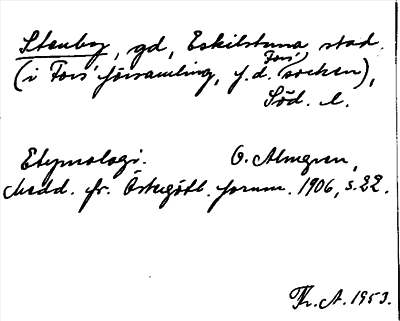 Stenby, gd, Eskilstuna stad.
(i Fors församling, f.d. Fors socken),
Söd. l.
Etymologi. O. Almgren,
Medd. fr. Östergötl. fornm. 1906, s. 22.
Th. A. 1953.